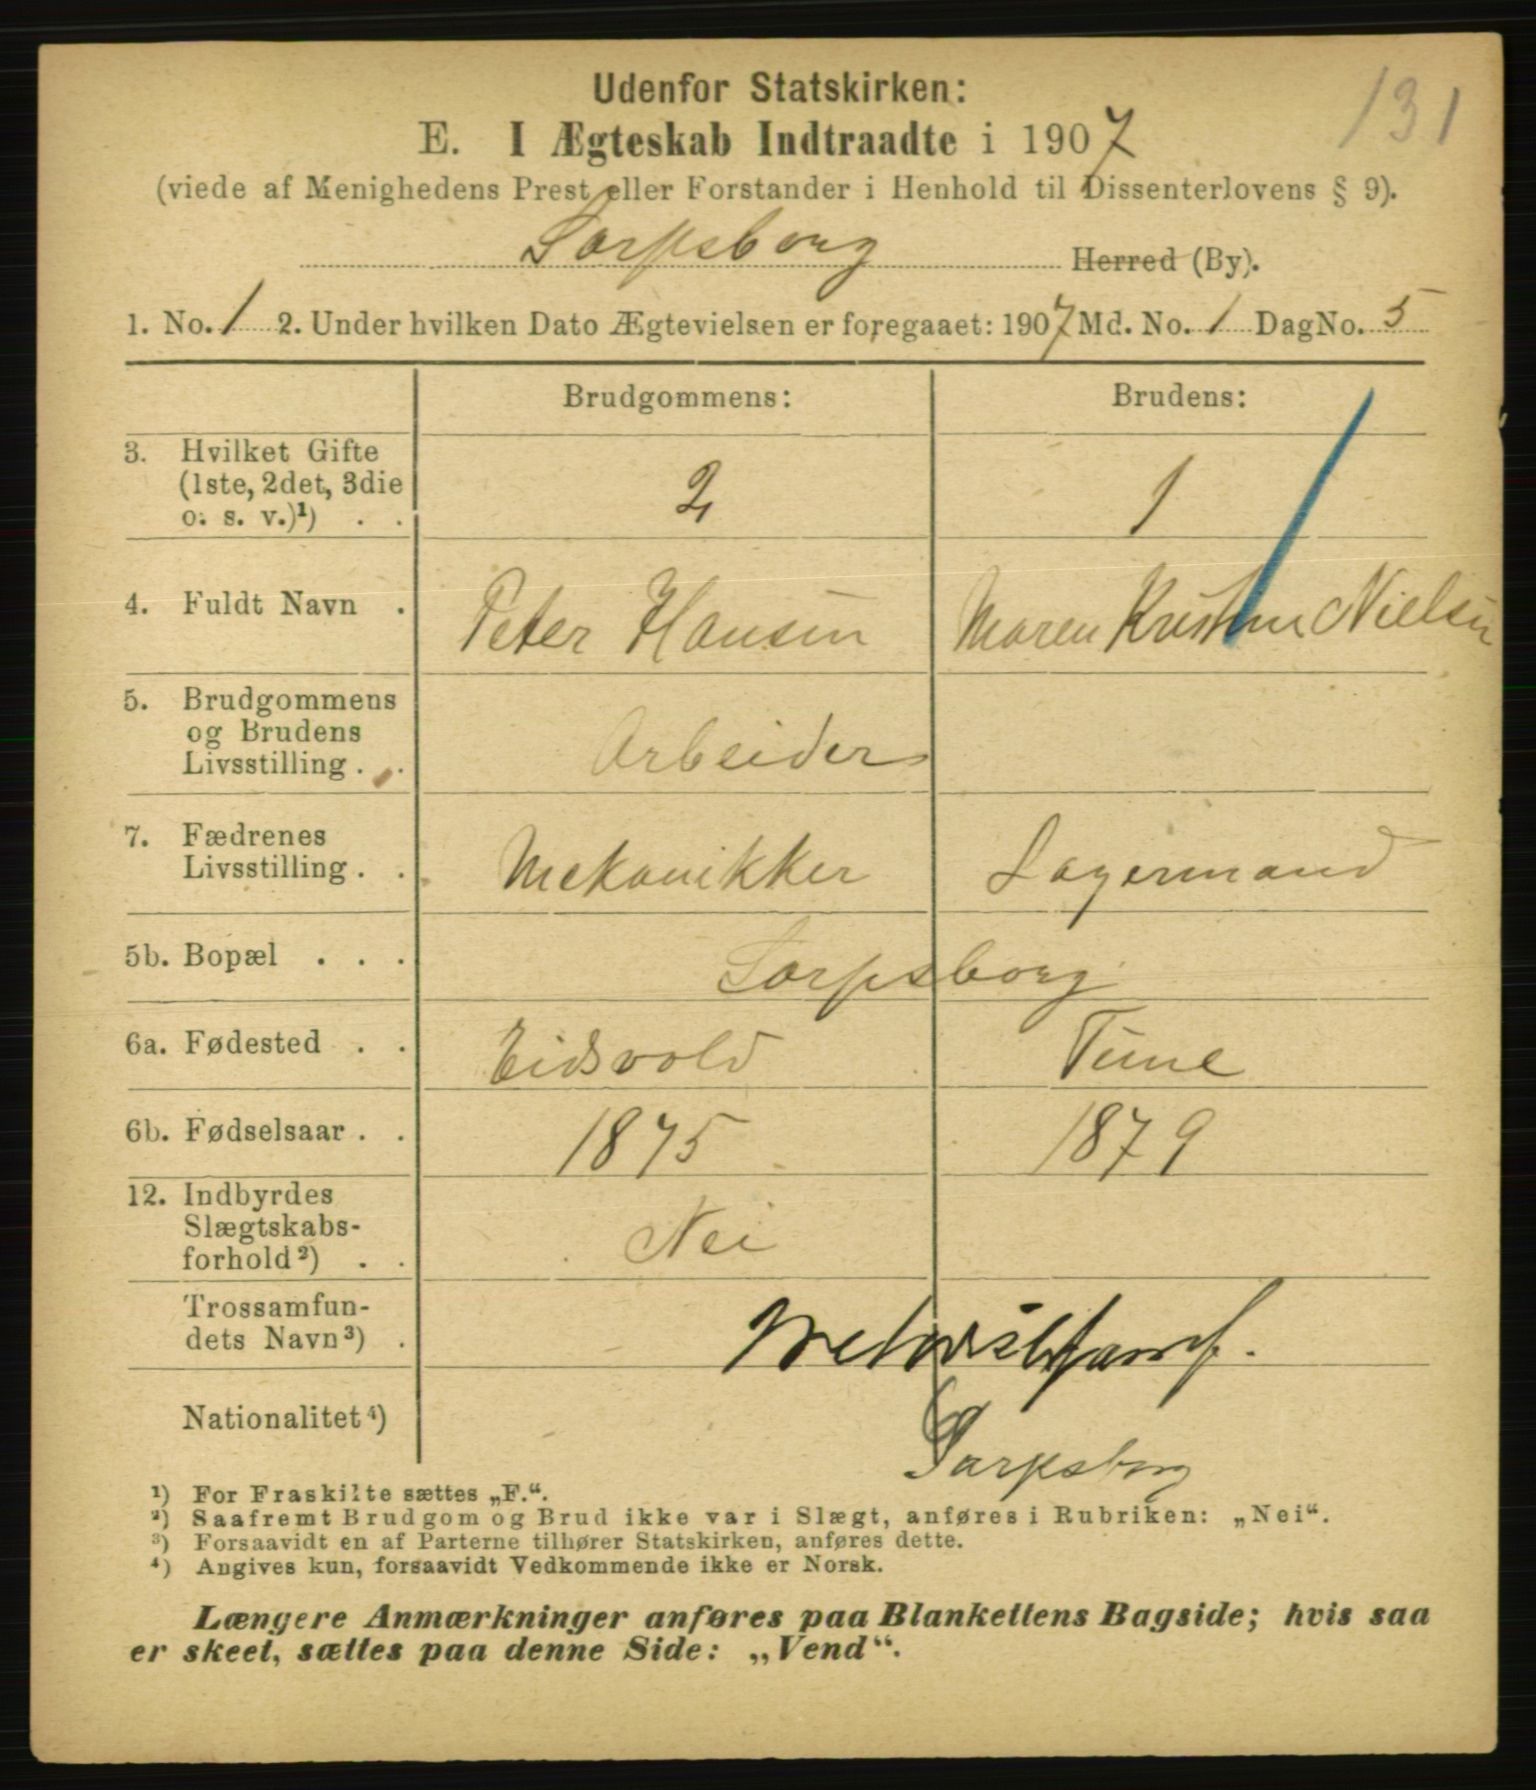 131
Udenfor Statskirken:
E. I Ægteskab Indtraadte i 1907
(viede af Menighedens Prest eller Forstander i Henhold til Dissenterlovens § 9).
Sarpsborg Herred (By).
1. No. 1 2. Under hvilken Dato Ægtevielsen er foregaaet: 1907 Md. No. 1 Dag No. 5
Brudgommens: Brudens:
3. Hvilket Gifte
(1ste, 2det, 3die
o. s. v.)¹) . . 2 1
4. Fuldt Navn . Peter Hansen Maren Kristine Nielsen
5. Brudgommens
og Brudens
Livsstilling . . Arbeider
7. Fædrenes
Livsstilling . . Mekanikker Lagermand
5b. Bopæl . . . Sarpsborg
6a. Fødested . . Eidsvold Tune
6b. Fødselsaar . . 1875 1879
12. Indbyrdes
Slægtskabs-
forhold²) . . Nei
Trossamfun-
dets Navn³) . Metodistsamf.
Nationalitet⁴)
Sarpsborg
¹) For Fraskilte sættes „F.“.
²) Saafremt Brudgom og Brud ikke var i Slægt, anføres i Rubriken: „Nei“.
³) Forsaavidt en af Parterne tilhører Statskirken, anføres dette.
⁴) Angives kun, forsaavidt Vedkommende ikke er Norsk.
Længere Anmærkninger anføres paa Blankettens Bagside; hvis saa
er skeet, sættes paa denne Side: „Vend“.